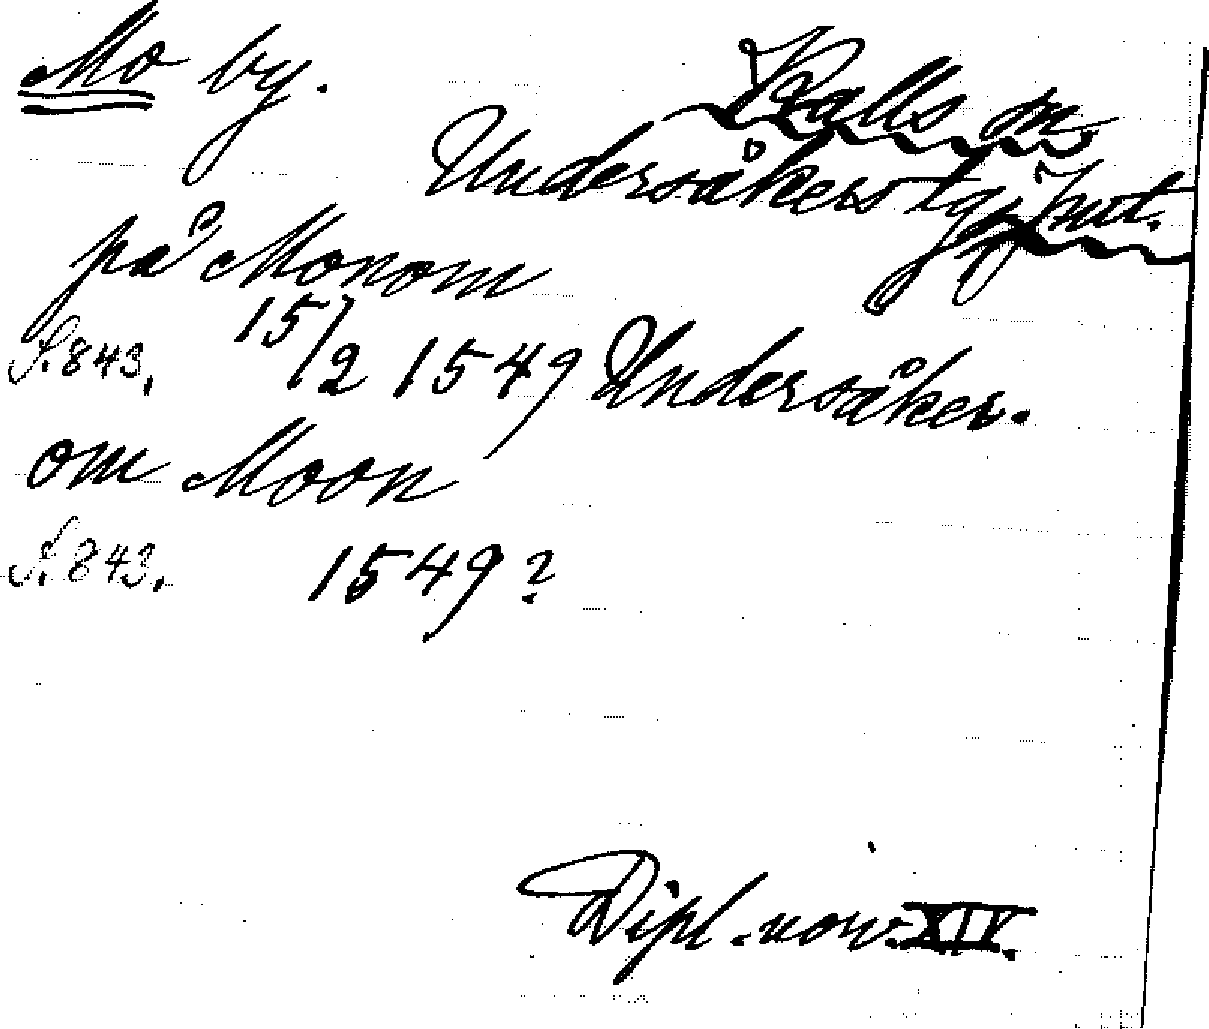 Mo by. Kalls sn
Undersåkers tg Jmt.
på Monom
S. 843. 15/2 1549 Undersåker.
om Moon
S. 843. 1549?
Dipl. norv. XIV.